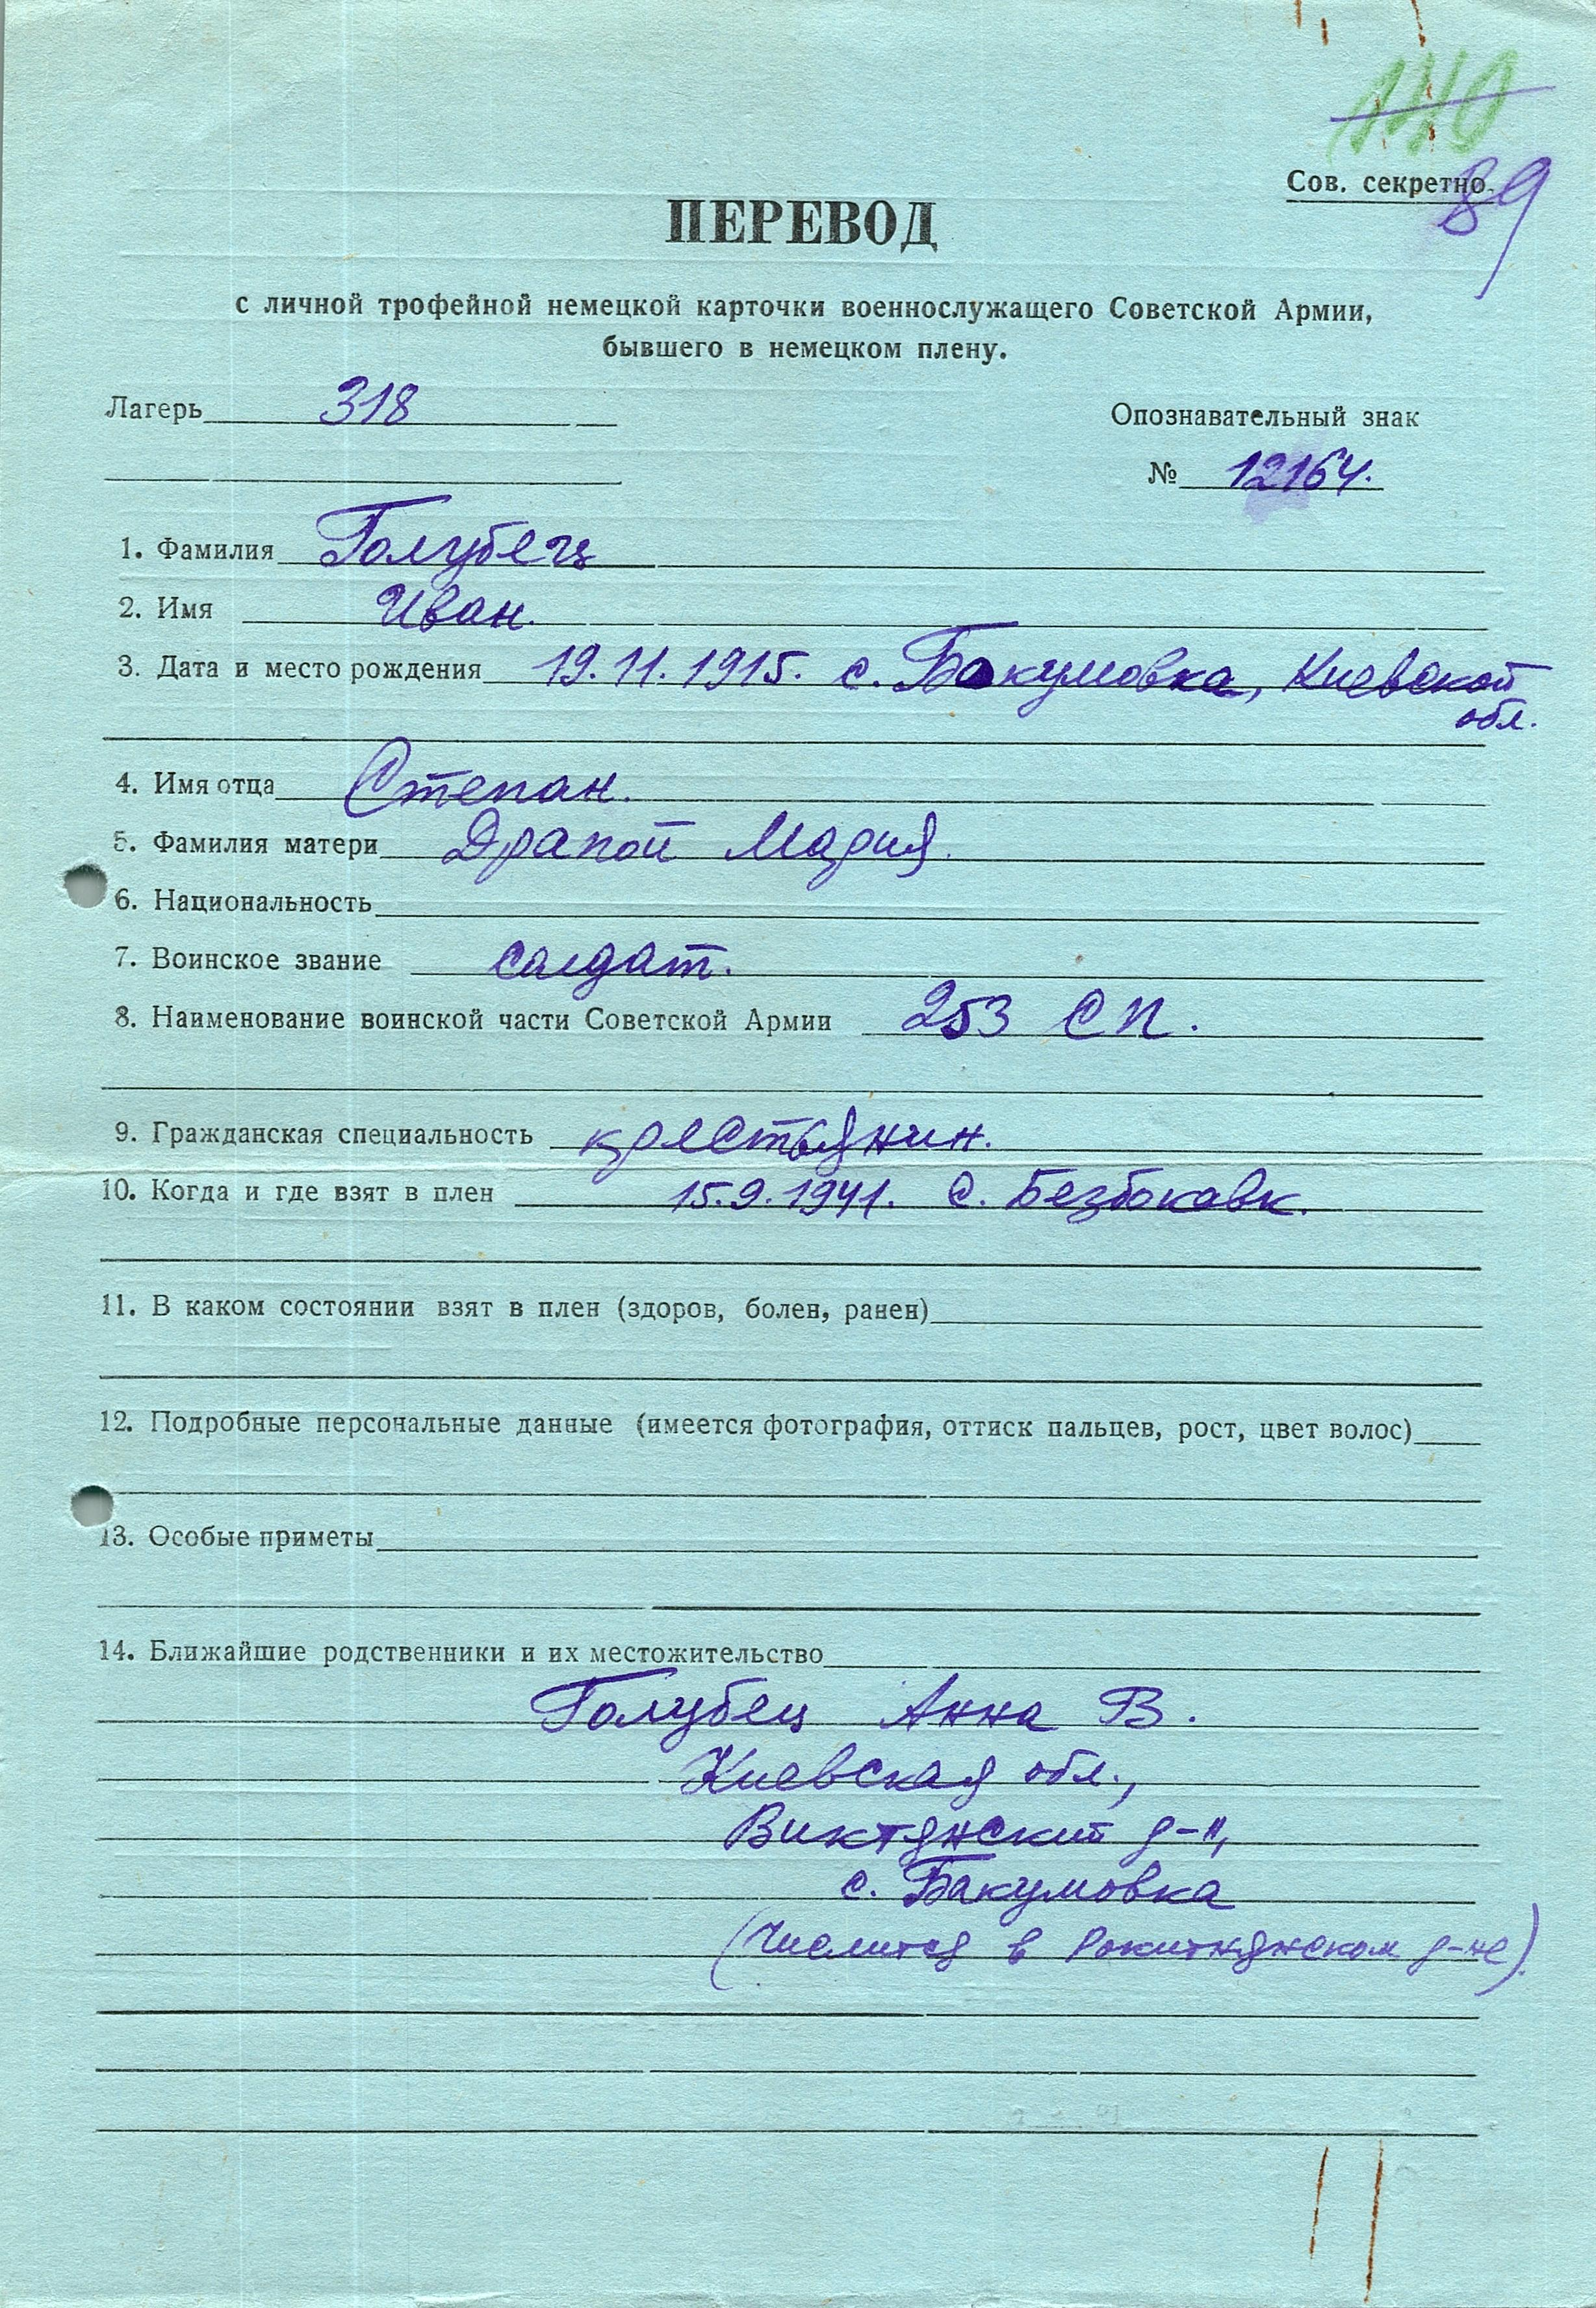 110
Сов. секретно.
89
ПЕРЕВОД
с личной трофейной немецкой карточки военнослужащего Советской Армии,
бывшего в немецком плену.
Лагерь 318
Опознавательный знак
№ 12164.
1. Фамилия Голубец
2. Имя Иван.
3. Дата и место рождения 19.11.1915. с. Бакумовка, Киевской
обл.
4. Имя отца Степан.
5. Фамилия матери Драпой Мария.
6. Национальность
7. Воинское звание солдат.
8. Наименование воинской части Советской Армии 253 СП.
9. Гражданская специальность крестьянин.
10. Когда и где взят в плен 15.9.1941. с. Безбокавк.
11. В каком состоянии взят в плен (здоров, болен, ранен)
12. Подробные персональные данные (имеется фотография, оттиск пальцев, рост, цвет волос)
13. Особые приметы
14. Ближайшие родственники и их местожительство
Голубец Анна В.
Киевская обл.,
Виктянский р-н,
с. Бакумовка
(числится в Рокитнянском р-не).